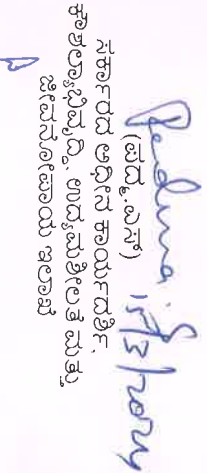 Padma 15/3/2024
(ಪದ್ಮ ಎನ್)
ಸರ್ಕಾರದ ಅಧೀನ ಕಾರ್ಯದರ್ಶಿ,
ಕೌಶಲ್ಯಾಭಿವೃದ್ಧಿ, ಉದ್ಯಮಶೀಲತೆ ಮತ್ತು
ಜೀವನೋಪಾಯ ಇಲಾಖೆ